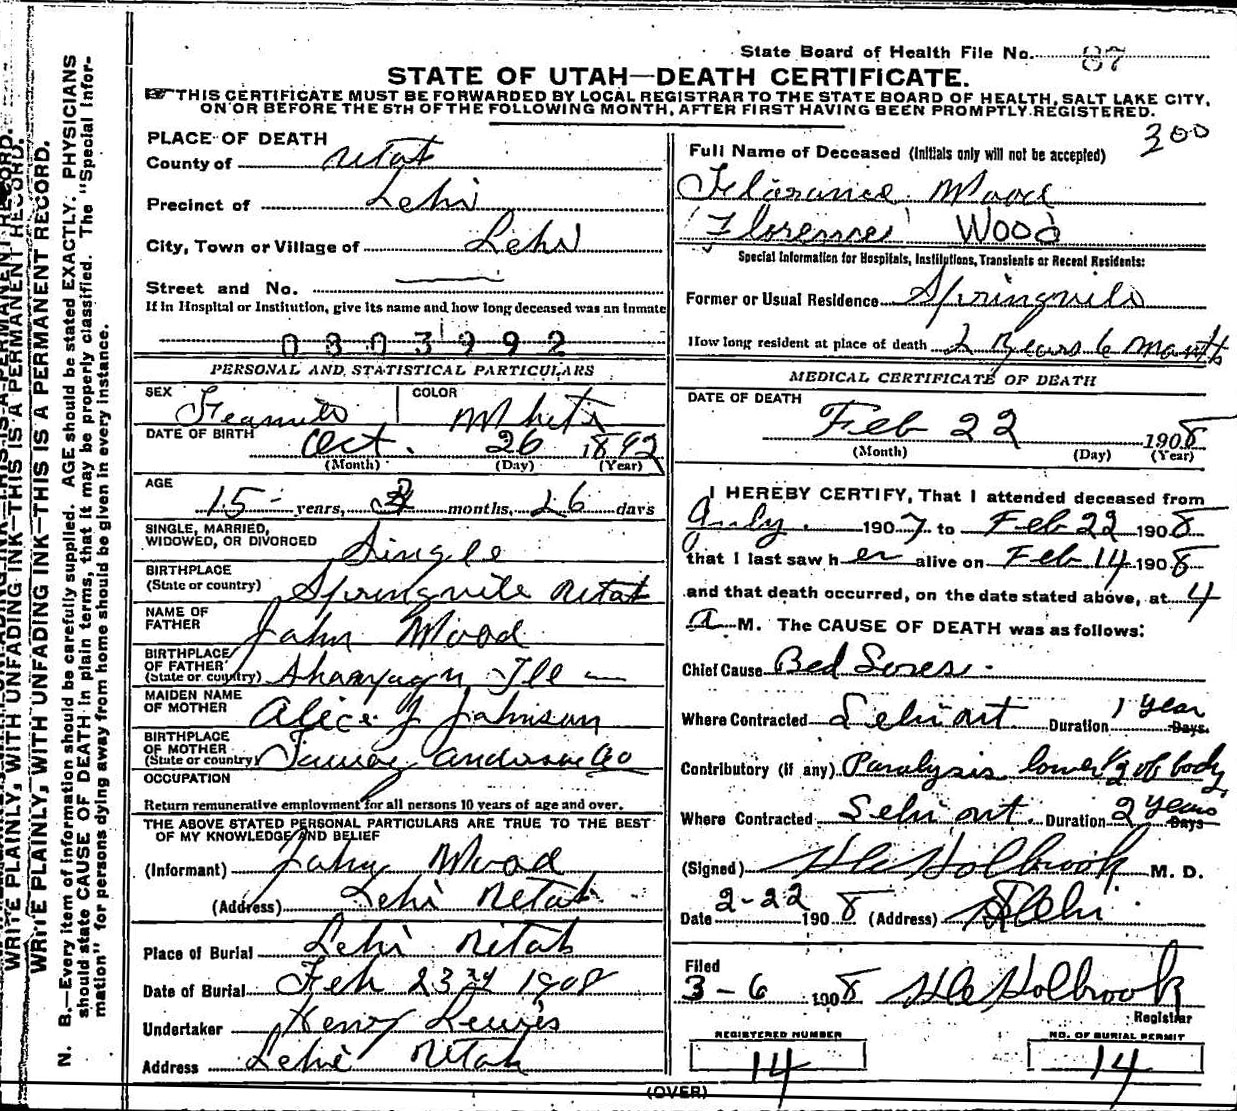 State Board of Health File No. 87
STATE OF UTAH—DEATH CERTIFICATE.
THIS CERTIFICATE MUST BE FORWARDED BY LOCAL REGISTRAR TO THE STATE BOARD OF HEALTH, SALT LAKE CITY,
ON OR BEFORE THE 5TH OF THE FOLLOWING MONTH, AFTER FIRST HAVING BEEN PROMPTLY REGISTERED.
300
PLACE OF DEATH
County of Utah
Precinct of Lehi
City, Town or Village of Lehi
Street and No.
If in Hospital or Institution, give its name and how long deceased was an inmate
0803992
PERSONAL AND STATISTICAL PARTICULARS
SEX Feamile
COLOR White
DATE OF BIRTH Oct. 26 1892
(Month) (Day) (Year)
AGE
15 years, 3 months, 26 days
SINGLE, MARRIED,
WIDOWED, OR DIVORCED Single
BIRTHPLACE
(State or country) Springvile Utah
NAME OF
FATHER John Wood
BIRTHPLACE
OF FATHER
(State or country) Ill
MAIDEN NAME
OF MOTHER Alice J Johnson
BIRTHPLACE
OF MOTHER
(State or country)
OCCUPATION
Return remunerative employment for all persons 10 years of age and over.
THE ABOVE STATED PERSONAL PARTICULARS ARE TRUE TO THE BEST
OF MY KNOWLEDGE AND BELIEF
(Informant) John Wood
(Address) Lehi Utah
Place of Burial Lehi Utah
Date of Burial Feb 23rd 1908
Undertaker Henry Lewis
Address Lehi Utah
Full Name of Deceased (Initials only will not be accepted)
Florance Wood
'Florence' Wood
Special Information for Hospitals, Institutions, Transients or Recent Residents:
Former or Usual Residence Springvile
How long resident at place of death 2 Years 6 Months
MEDICAL CERTIFICATE OF DEATH
DATE OF DEATH
Feb 22 1908
(Month) (Day) (Year)
I HEREBY CERTIFY, That I attended deceased from
July 1907 to Feb 22 1908
that I last saw her alive on Feb 14 1908
and that death occurred, on the date stated above, at 4
A M. The CAUSE OF DEATH was as follows:
Chief Cause Bed Sores.
Where Contracted Lehi Ut. Duration 1 Year Days.
Contributory (if any) Paralysis lower 1/2 of body
Where Contracted Lehi Ut. Duration 2 years Days
(Signed) H Holbrook M. D.
Date 2-22 1908 (Address) Lehi
Filed
3-6 1908 H Holbrook
Registrar
REGISTERED NUMBER
14
NO. OF BURIAL PERMIT
14
(OVER)
WRITE PLAINLY, WITH UNFADING INK—THIS IS A PERMANENT RECORD.
WRITE PLAINLY, WITH UNFADING INK—THIS IS A PERMANENT RECORD.
N. B.—Every item of information should be carefully supplied. AGE should be stated EXACTLY. PHYSICIANS
should state CAUSE OF DEATH in plain terms, that it may be properly classified. The "Special Infor-
mation" for persons dying away from home should be given in every instance.